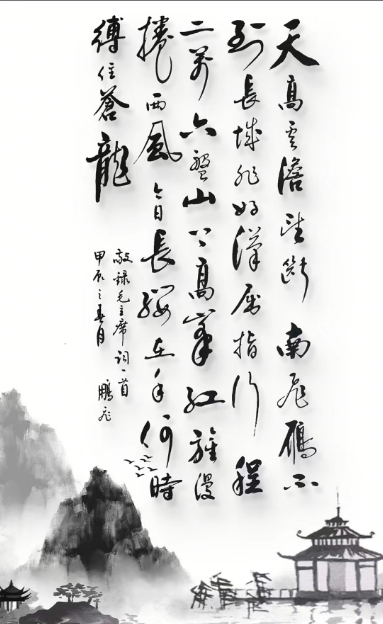 天高云澹望斷南飛鴈不
到長城非好漢屈指行程
二萬六盤山上高峯紅旗漫
捲西風今日長纓在手何時
縛住蒼龍
敬録毛主席詞一首 鵬飛
甲辰之春月